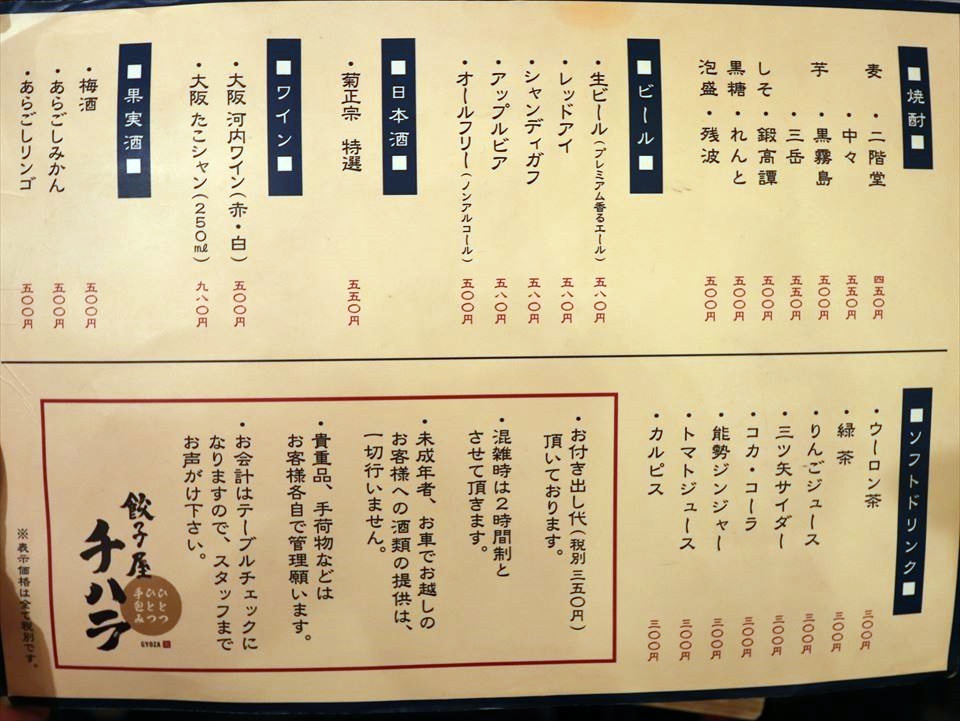 ■焼酎■
麦 ・二階堂 四五〇円
・中々 五五〇円
芋 ・黒霧島 五〇〇円
・三岳 五五〇円
しそ・鍛高譚 五〇〇円
黒糖・れんと 五〇〇円
泡盛・残波 五〇〇円
■ビール■
・生ビール(プレミアム香るエール) 五八〇円
・レッドアイ 五八〇円
・シャンディガフ 五八〇円
・アップルビア 五八〇円
・オールフリー(ノンアルコール) 五〇〇円
■日本酒■
・菊正宗 特選 五五〇円
■ワイン■
・大阪 河内ワイン(赤・白) 五〇〇円
・大阪 たこシャン(250㎖) 九八〇円
■果実酒■
・梅酒 五〇〇円
・あらごしみかん 五〇〇円
・あらごしリンゴ 五〇〇円
■ソフトドリンク■
・ウーロン茶 三〇〇円
・緑茶 三〇〇円
・りんごジュース 三〇〇円
・三ツ矢サイダー 三〇〇円
・コカ・コーラ 三〇〇円
・能勢ジンジャー 三〇〇円
・トマトジュース 三〇〇円
・カルピス 三〇〇円
・お付き出し代(税別三五〇円)
頂いております。
・混雑時は2時間制と
させて頂きます。
・未成年者、お車でお越しの
お客様への酒類の提供は、
一切行いません。
・貴重品、手荷物などは
お客様各自で管理願います。
・お会計はテーブルチェックに
なりますので、スタッフまで
お声がけ下さい。
餃子屋
チハラ
ひとつ
ひとつ
手包み
GYOZA
※表示価格は全て税別です。